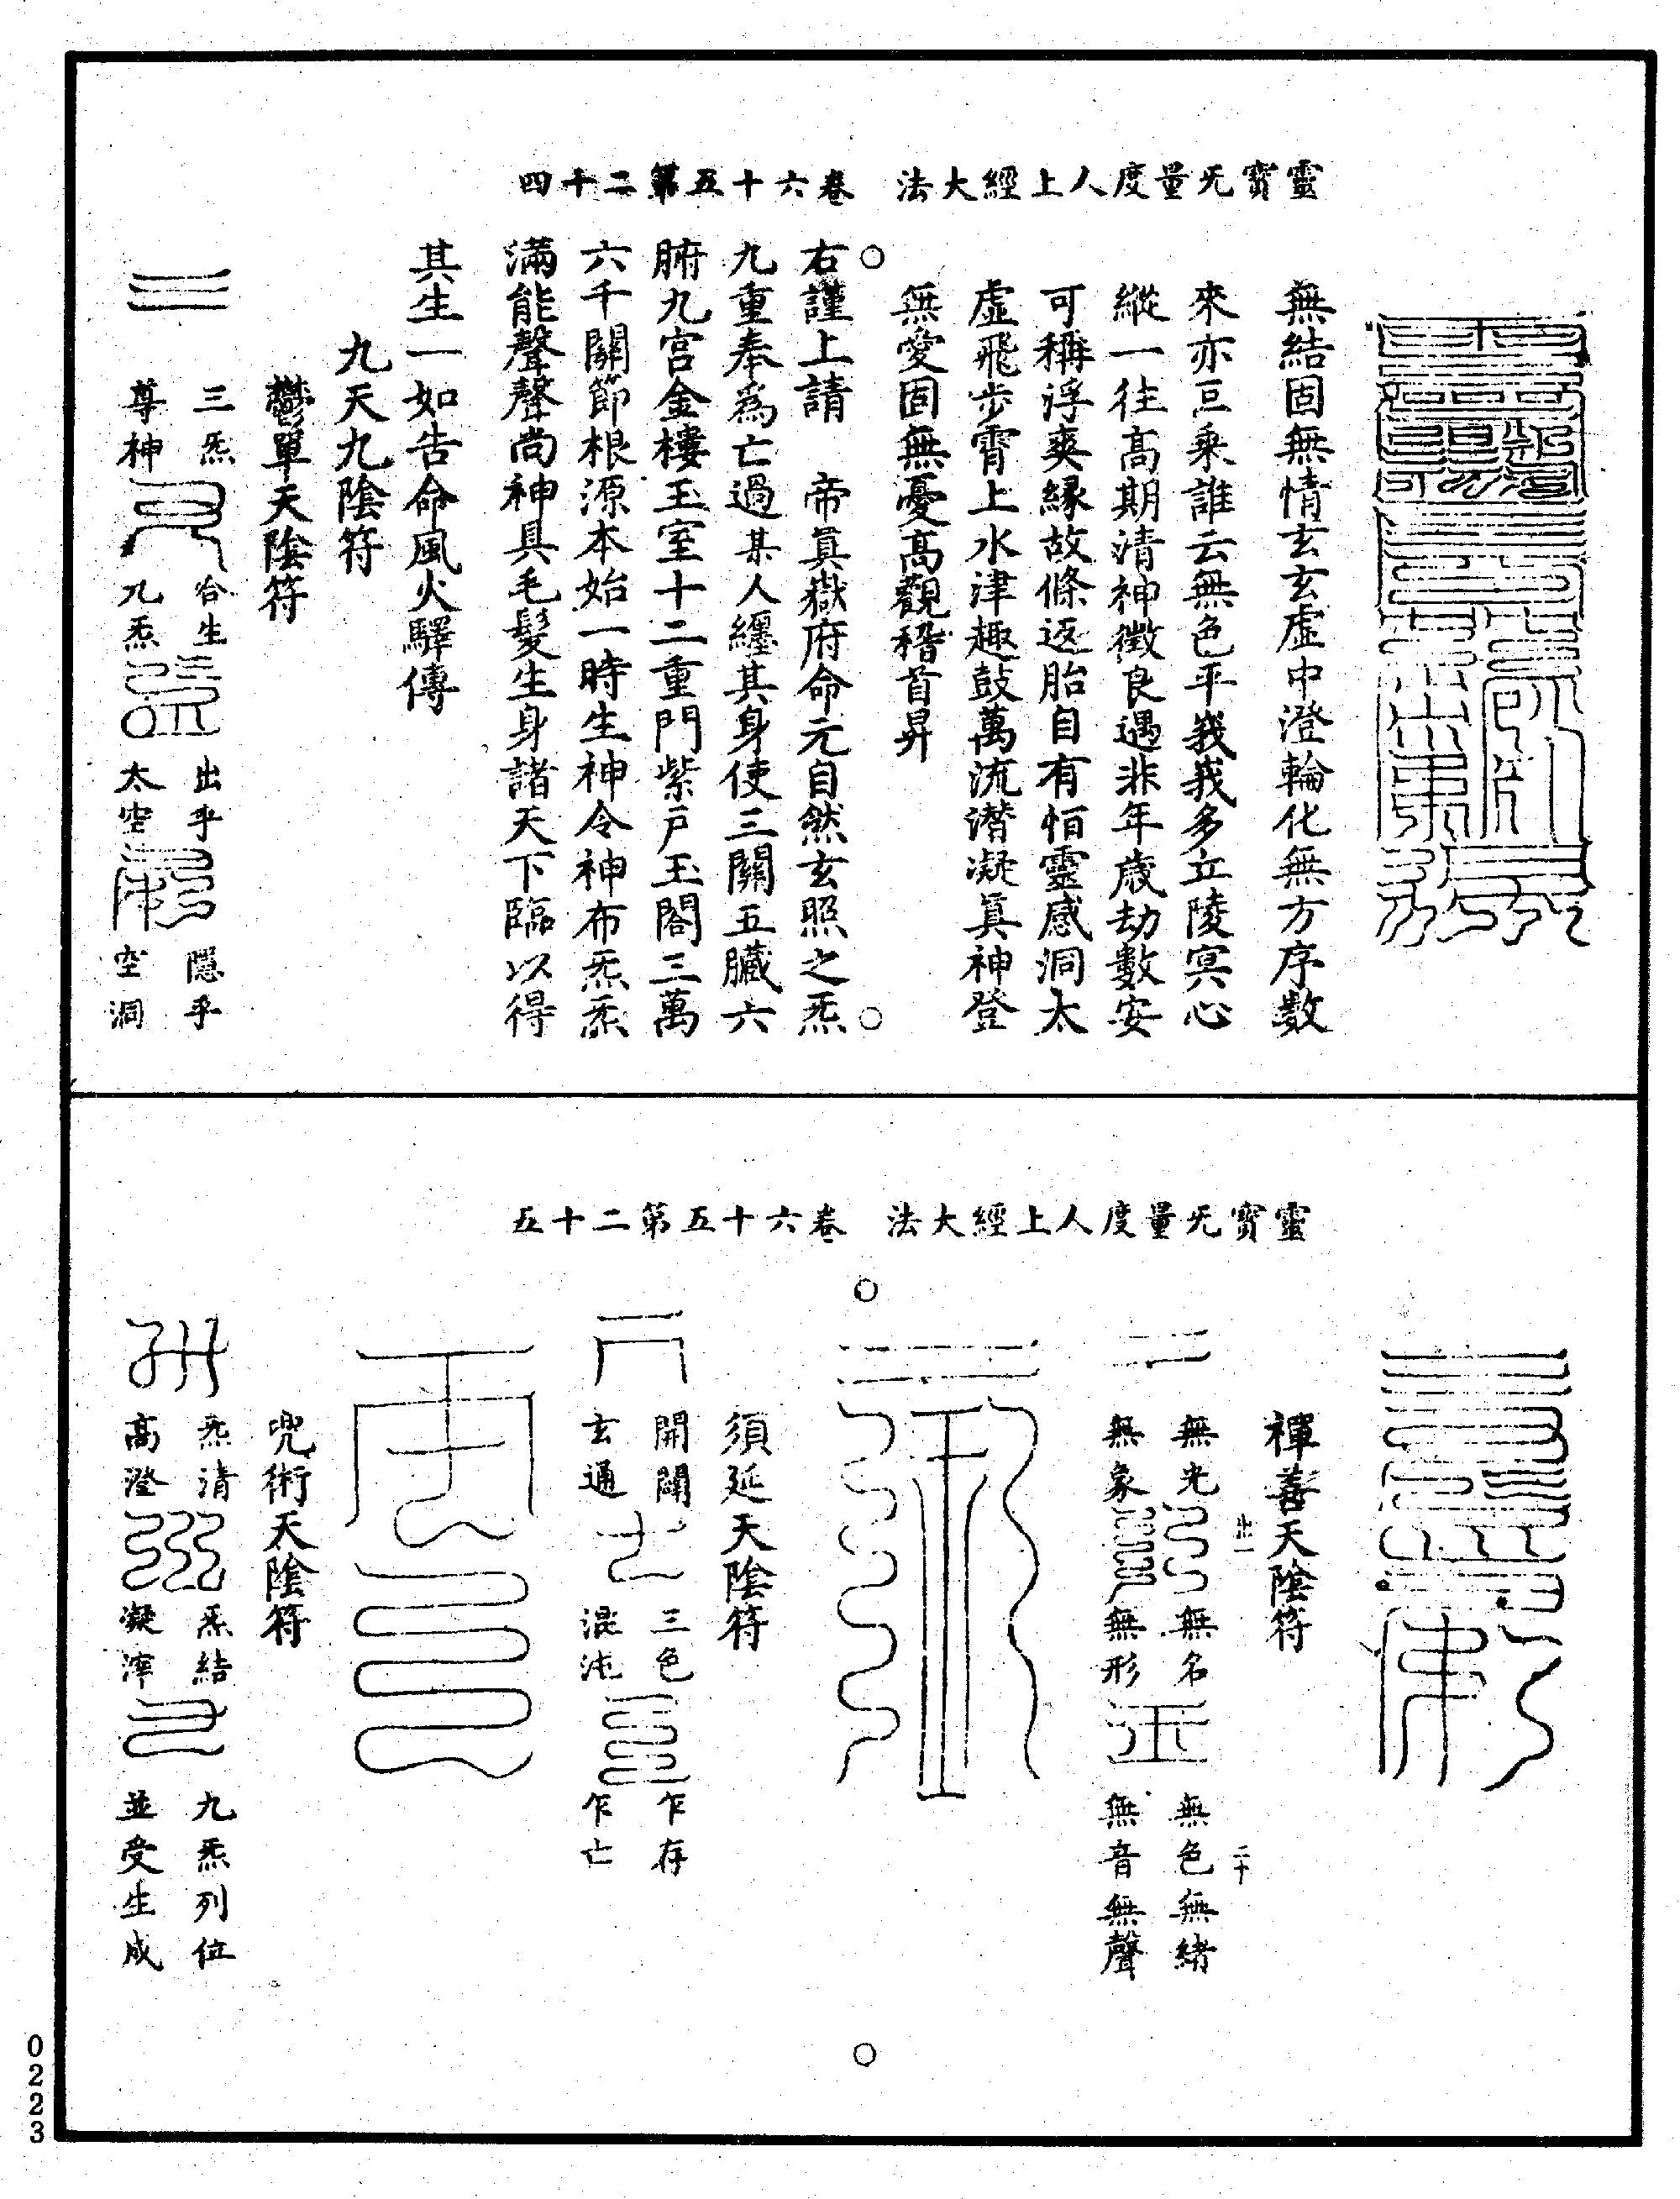 靈寶无量度人上經大法　卷六十五第二十四
無結固無情玄玄虛中澄輪化無方序數
來亦叵乘誰云無色平峩峩多立陵冥心
縱一往高期清神徵良遇非年歲劫數安
可稱浮爽緣故條返胎自有怕靈感洞太
虛飛步霄上水津趣鼓萬流潛凝眞神登
無愛固無憂高觀稽首昇
右謹上請　帝眞嶽府命元自然玄照之炁
九重奉爲亡過某人纏其身使三關五臟六
腑九宮金樓玉室十二重門紫戶玉閣三萬
六千關節根源本始一時生神令神布炁炁
滿能聲聲尚神具毛髮生身諸天下臨以得
其生一如告命風火驛傳
九天九陰符
鬱單天陰符
三炁　合生　出乎　隱乎
尊神　九炁　太空　空洞
靈寶无量度人上經大法　卷六十五第二十五
禪善天陰符
出一　二十
無光　無名　無色無緒
無象　無形　無音無聲
須延天陰符
開闢　三色　乍存
玄通　混沌　乍亡
兜術天陰符
炁清　炁結　九炁列位
高澄　凝滓　並受生成
0223